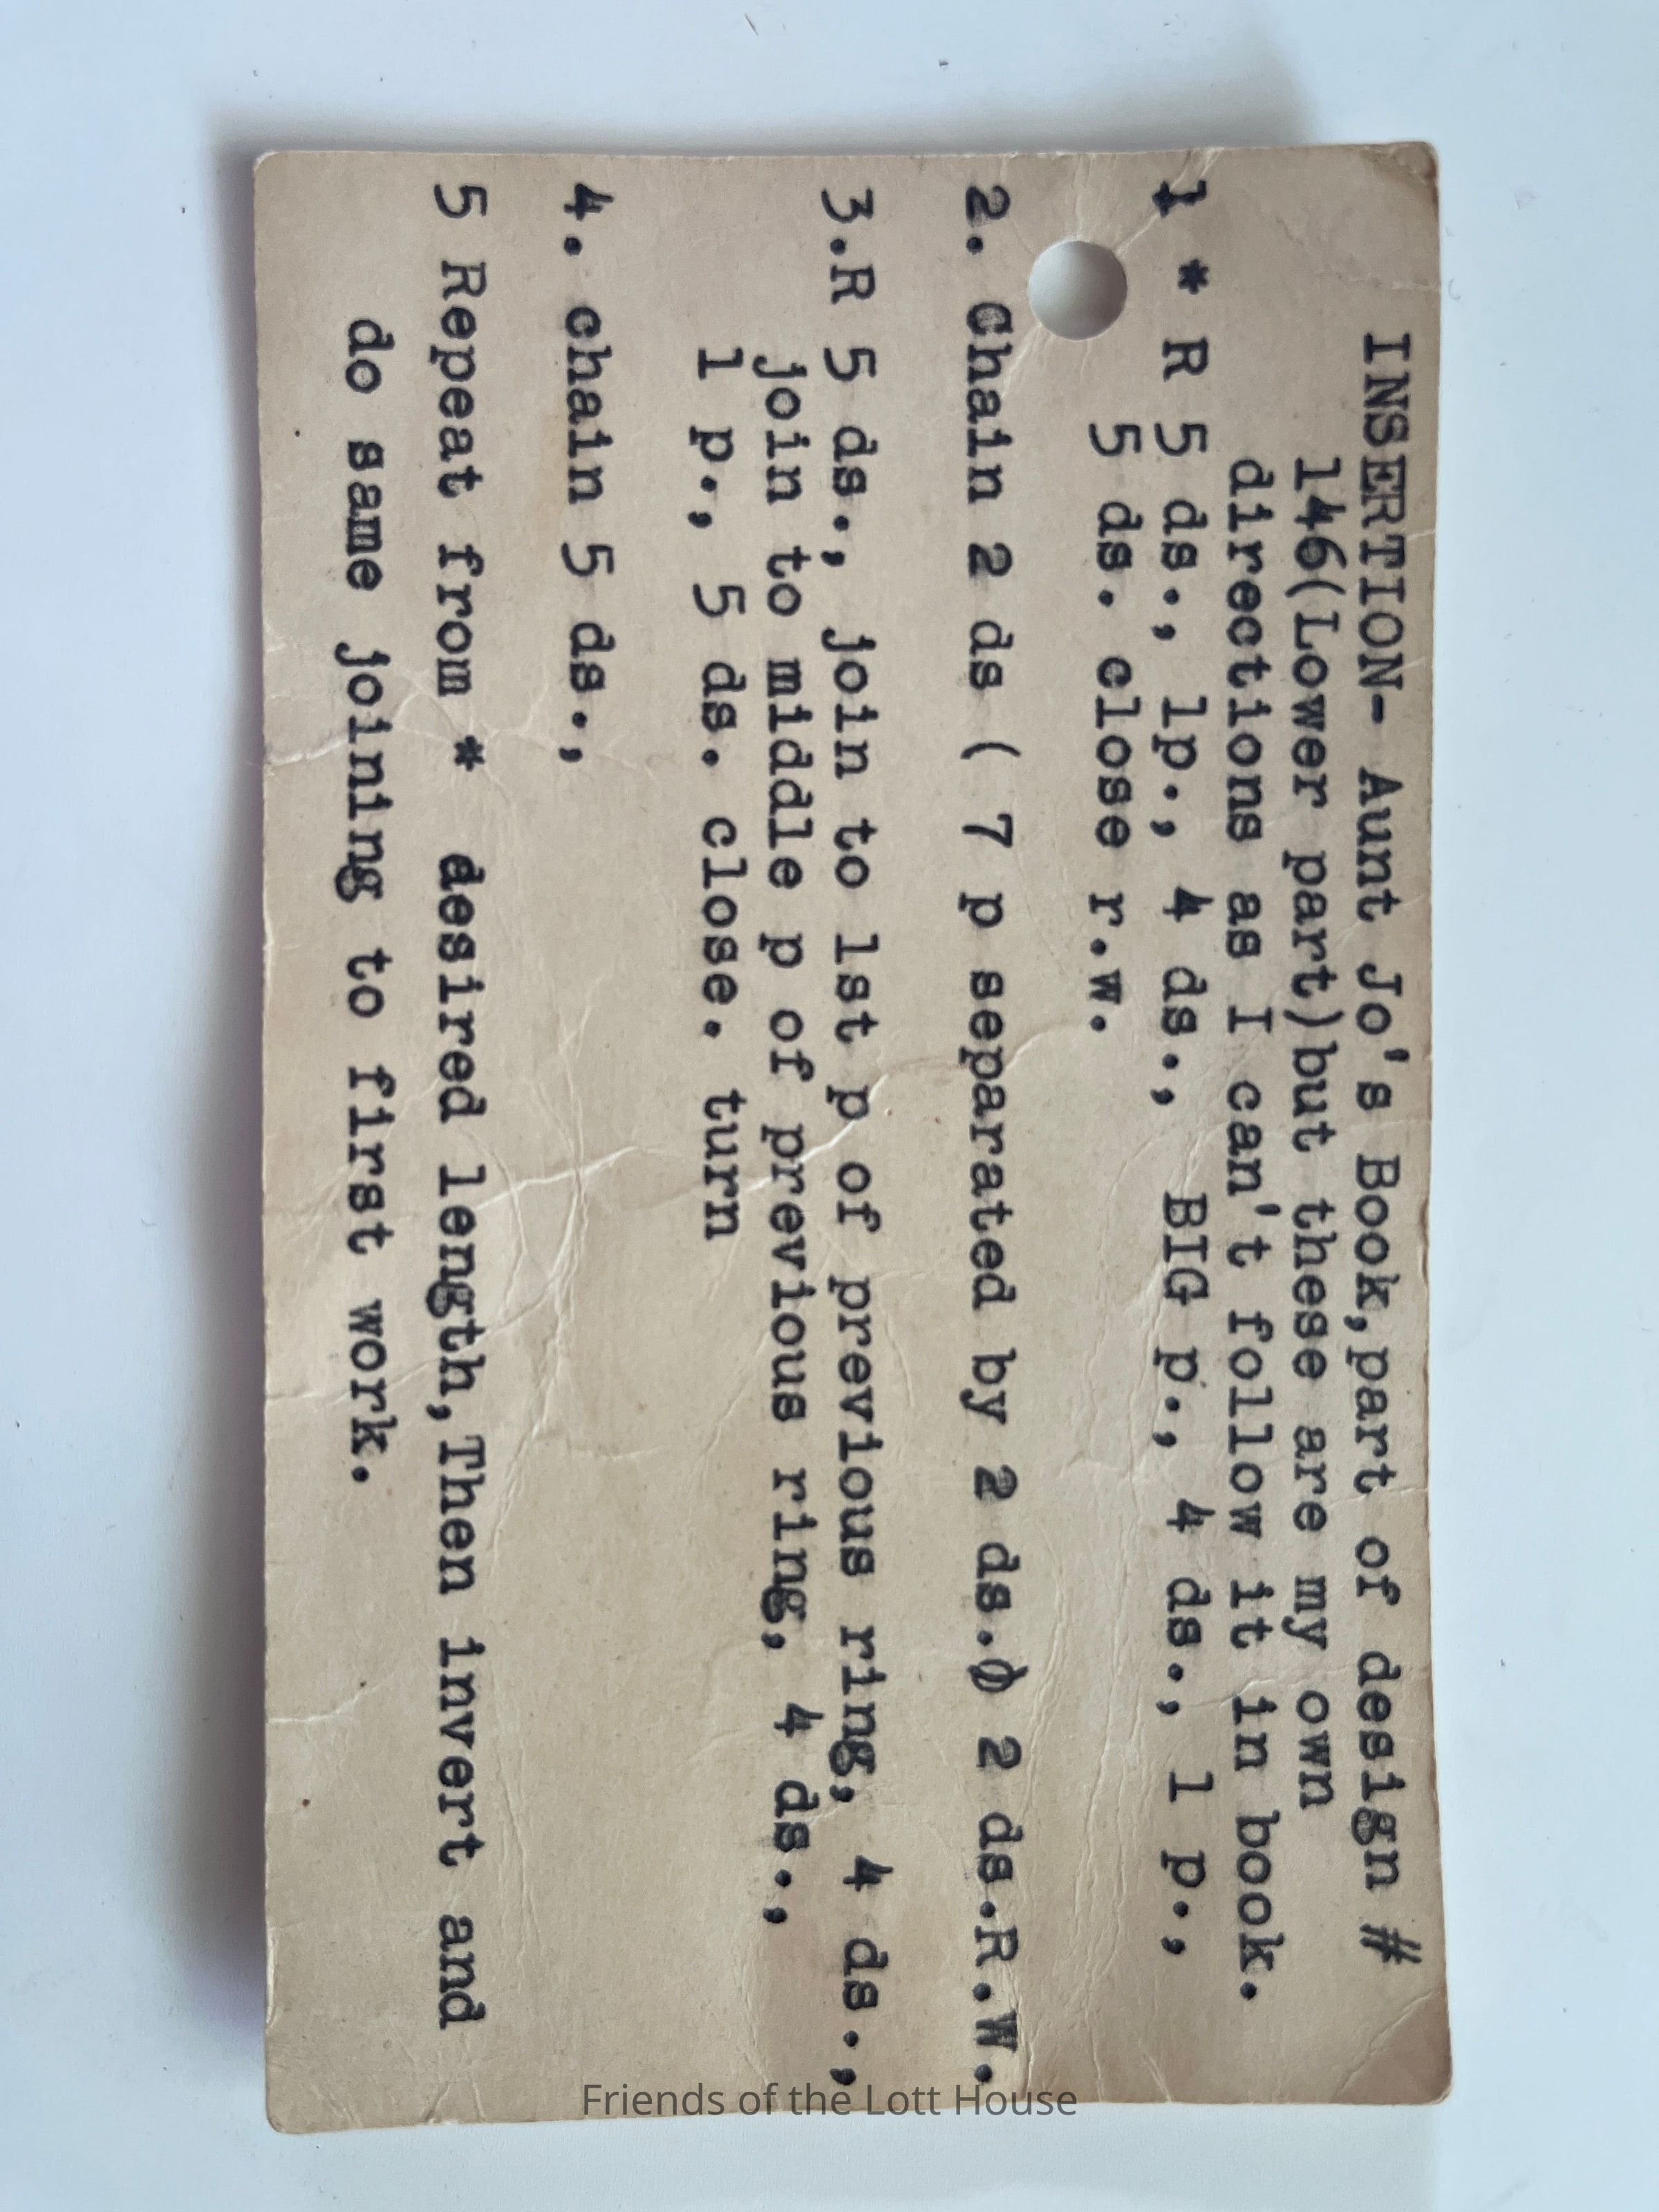 INSERTION- Aunt Jo's Book,part of design #
146(Lower part)but these are my own
directions as I can't follow it in book.
1 * R 5 ds., 1p., 4 ds., BIG p., 4 ds., 1 p.,
5 ds. close r.w.
2. Chain 2 ds ( 7 p separated by 2 ds.) 2 ds.R.W.
3.R 5 ds., join to 1st p of previous ring, 4 ds.,
join to middle p of previous ring, 4 ds.,
1 p., 5 ds. close. turn
4. chain 5 ds.,
5 Repeat from * desired length,Then invert and
do same joining to first work.
Friends of the Lott House